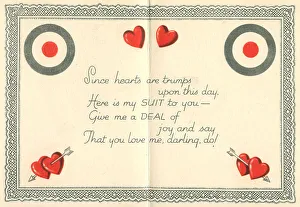 Since hearts are trumps
upon this day.
Here is my SUIT to you—
Give me a DEAL of
joy and say
That you love me, darling, do!